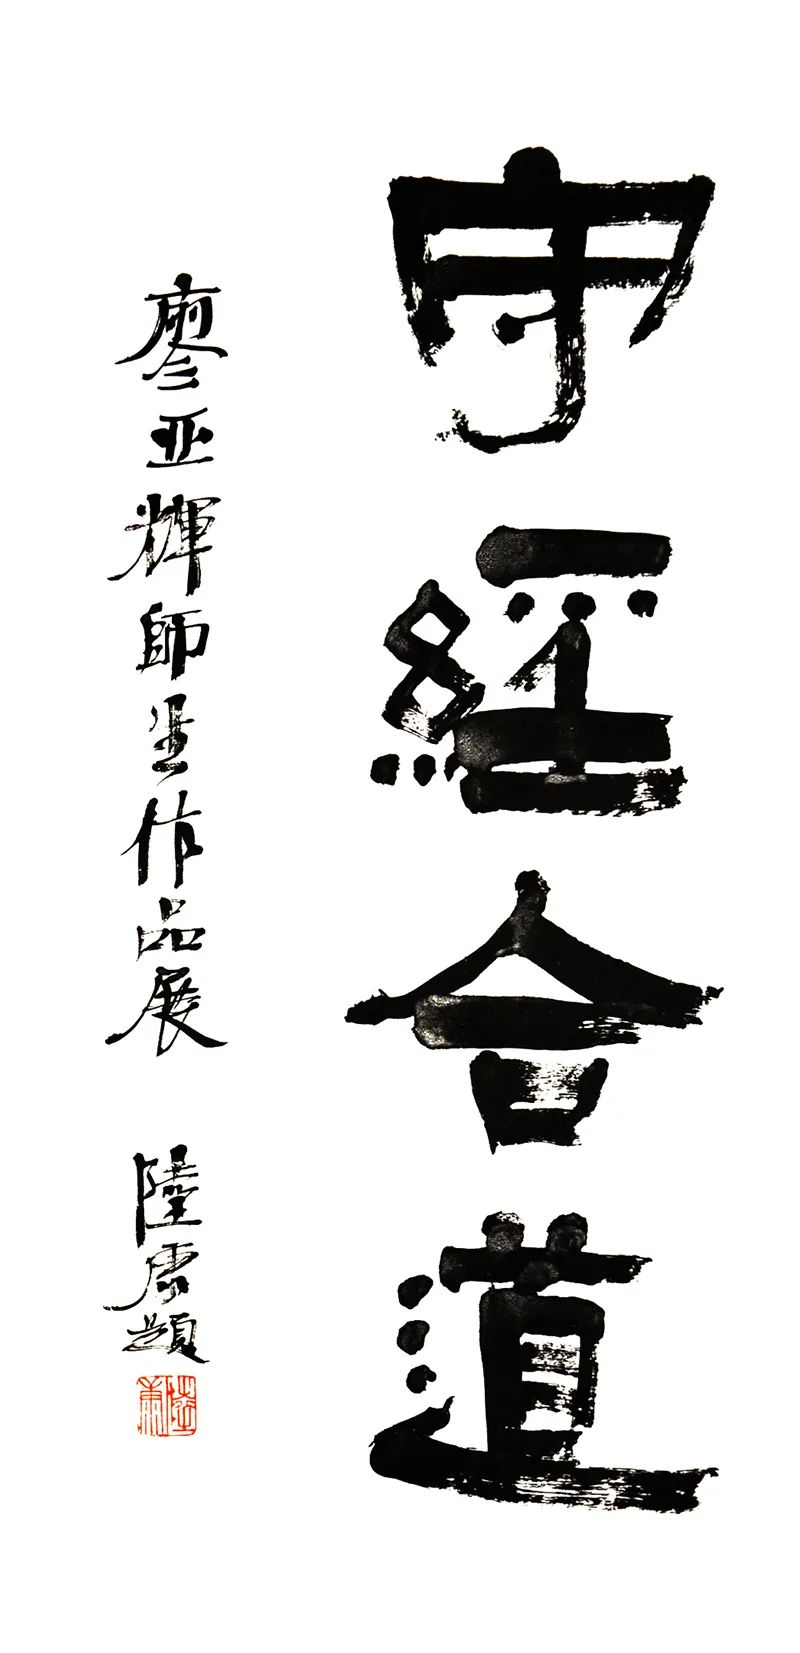 守經合道
廖亚輝師生作品展 陸康題
陸康